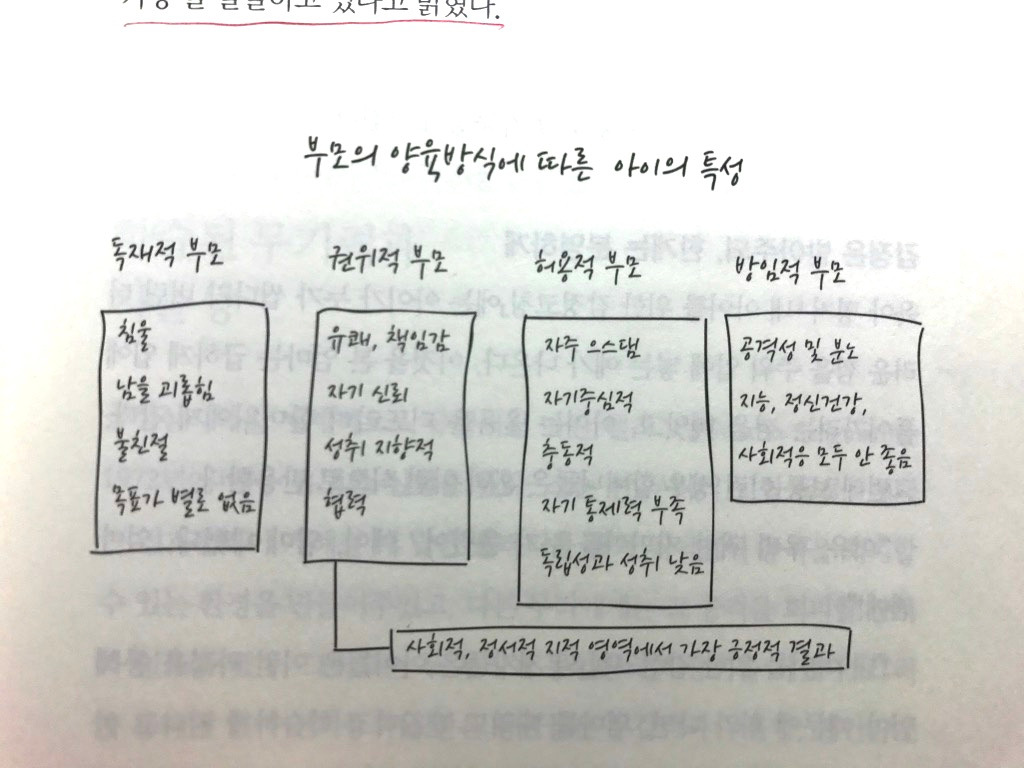 있다고 밝혔다.
부모의 양육방식에 따른 아이의 특성
독재적 부모
침울
남을 괴롭힘
불친절
목표가 별로 없음
권위적 부모
유쾌, 책임감
자기 신뢰
성취 지향적
협력
허용적 부모
자주 으스댐
자기중심적
충동적
자기 통제력 부족
독립성과 성취 낮음
방임적 부모
공격성 및 분노
지능, 정신건강,
사회적응 모두 안 좋음
사회적, 정서적 지적 영역에서 가장 긍정적 결과